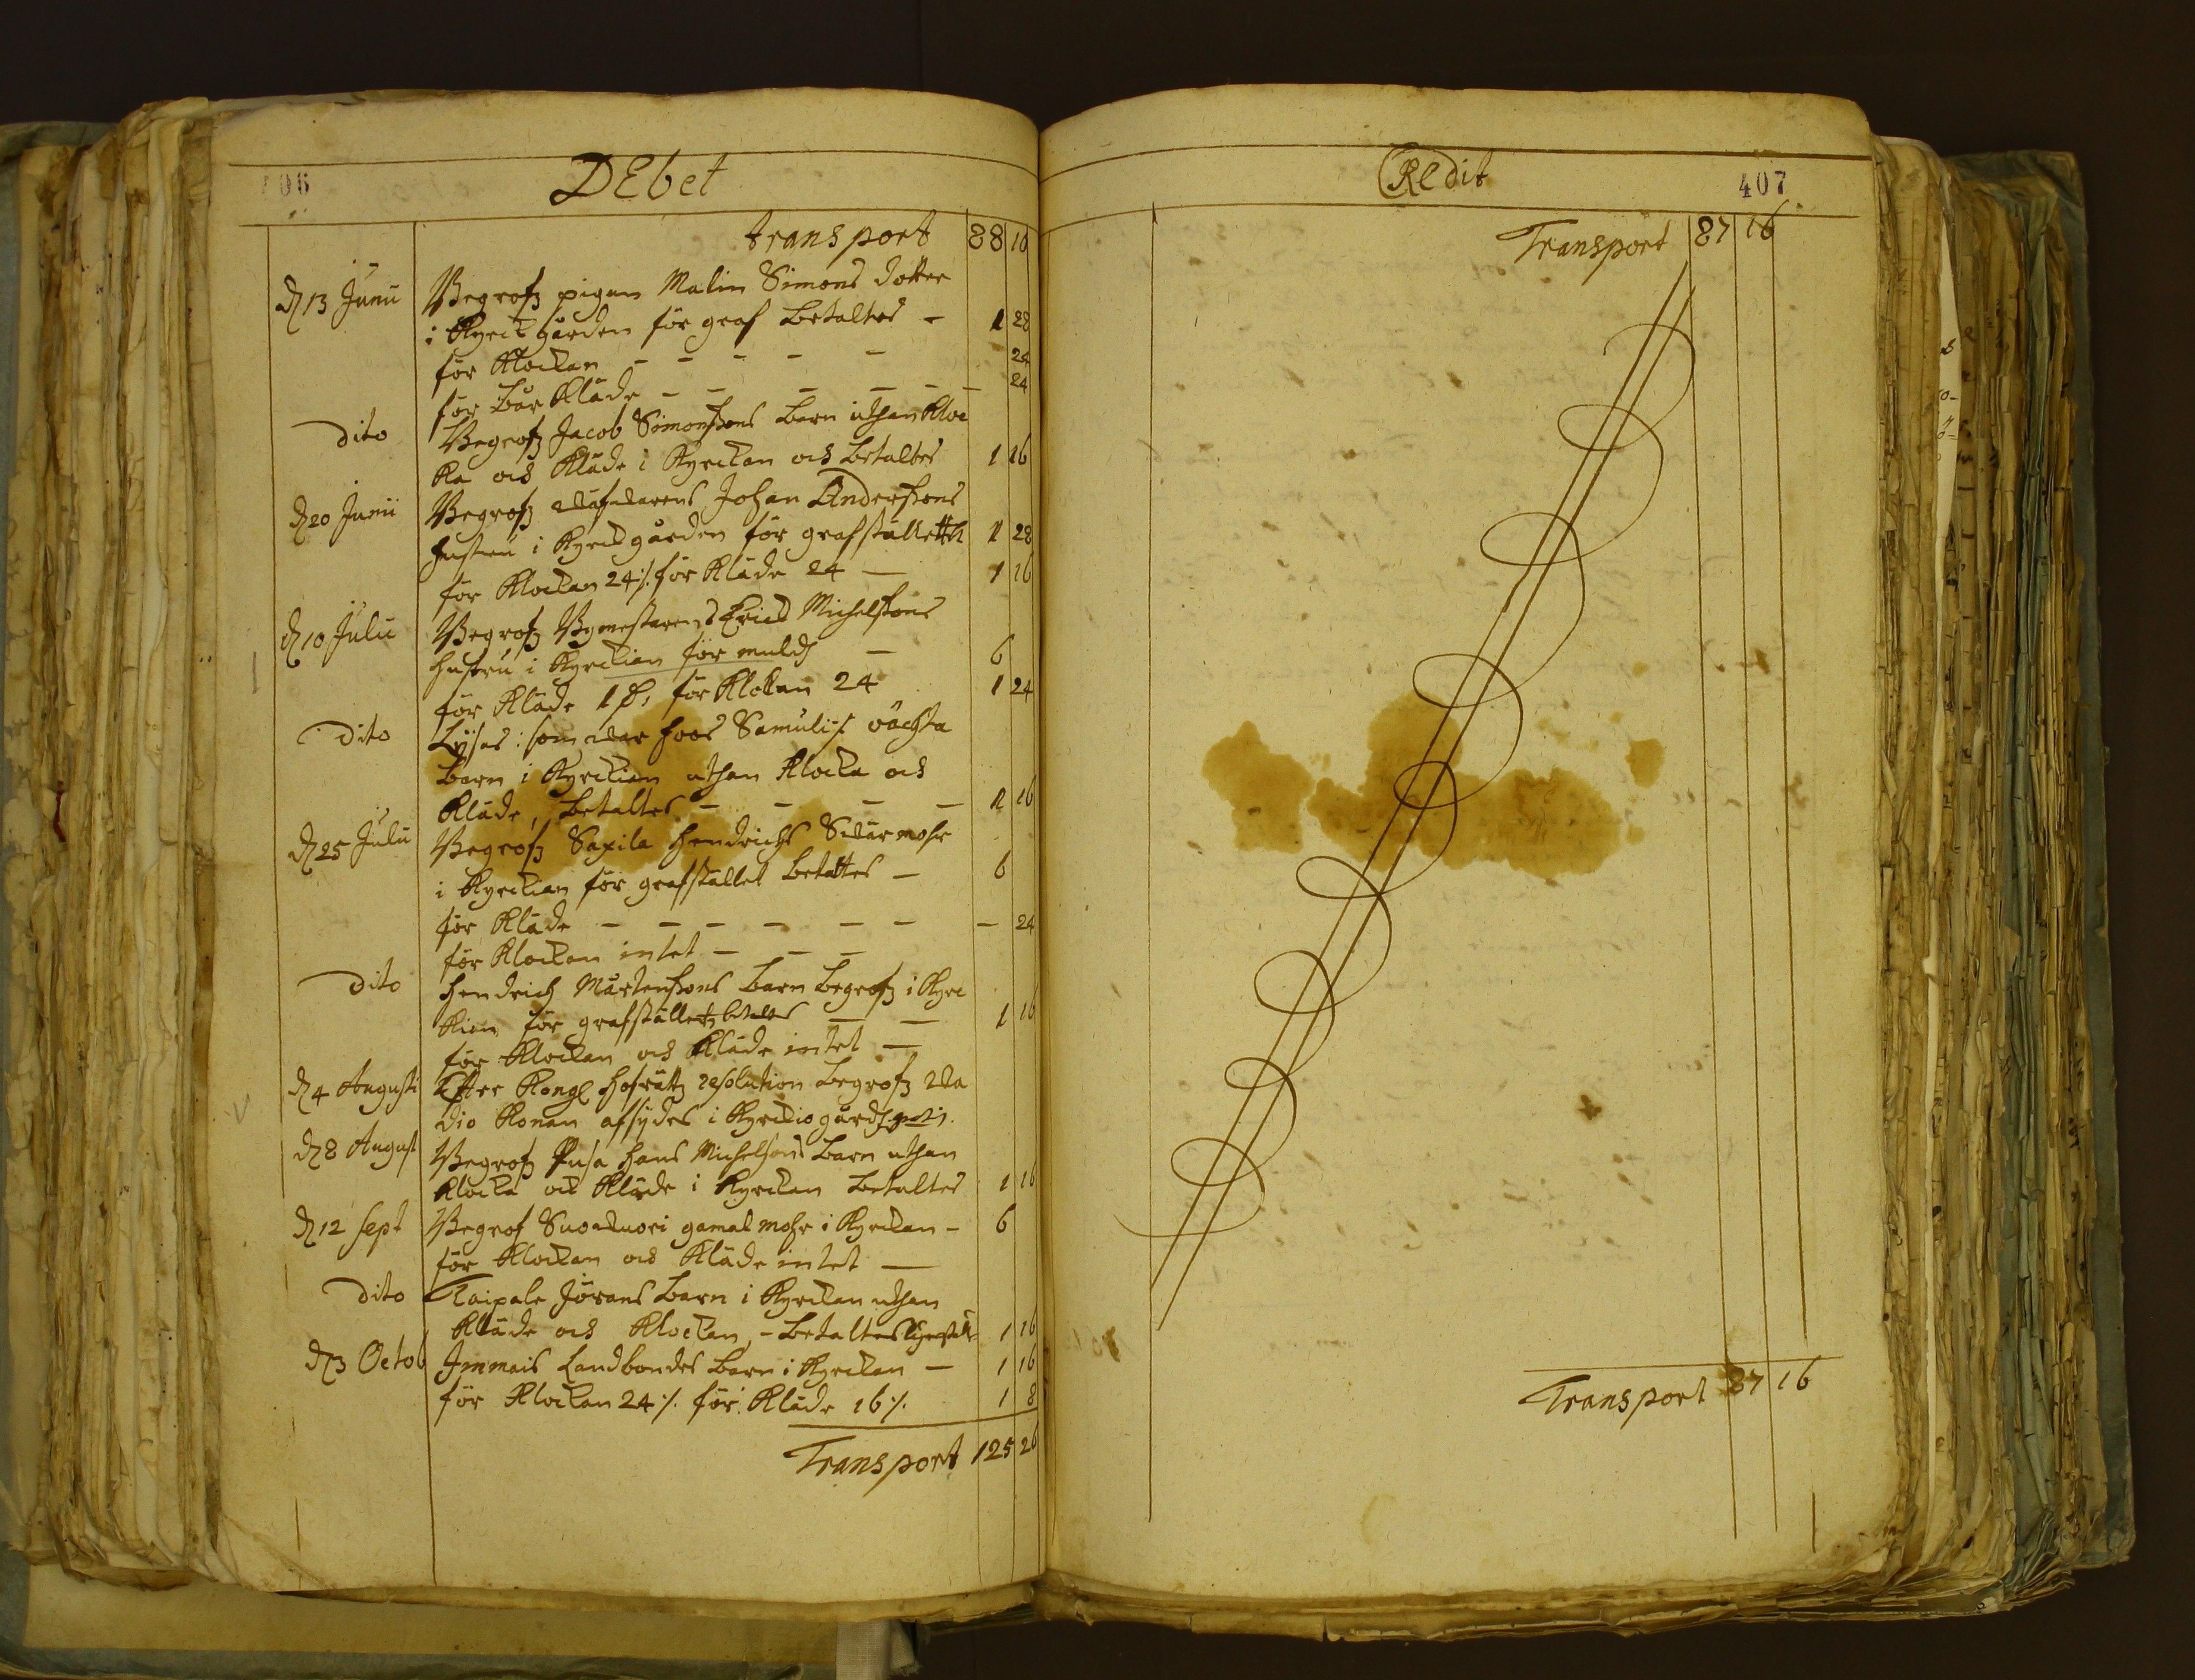 406
DEbet
transport 88 16
d 13 Junii Begrofz pigan Malin Simons dotter
i Kyrckgården för graf betaltes - 1 28
för Klockan - - - - - 24
för Bår Kläde - - - - - - 24
dito Begrofz Jacob Simonssons barn uthan Kloc
ka och Kläde i Kyrckan och betaltes 1 16
d 20 Junii Begrofz Johan Anderssons
hustru i Kyrckgården för grafstället 1 28
för Klockan 24 ./. för Kläde 24 — 1 16
d 10 Julii Begrofz Bymestarens Erick Michelssons
hustru i Kyrckian för muld - 6
för Kläde 1 för Klockan 24 1 24
dito Lijsas : som war hoos Samuli ./. öächta
barn i Kyrckian uthan Klocka och
Kläde, betaltes - - - - 1 16
d 25 Julii Begrofz Saxila Hendrichs Swärmohr
i Kyrckian för grafstället betaltes - 6
för Kläde - - - - - - - 24
för Klockan intet - - -
dito Hendrich Mårtenssons barn begrofz i Kyrc
kian för grafstället betaltes — — 1 16
för Klockan och Kläde intet —
d 4 Augusti Effter Kongl Hofrättz resolution begrofz wa
dio Konan afsijdes i Kyrckiogård
d 8 August Begrofz Pusa Hans Michelsons barn uthan
Klocka och Kläde i Kyrckan betaltes 1 16
d 12 Sept Begrof Suowuori gamal mohr i Kyrckan - 6
för Klockan och Kläde intet —
dito Taipale Jörans barn i Kyrckan uthan
Kläde och Klockan, - betaltes 1 16
d 3 Octob Immais Landbondes barn i Kyrckan - 1 16
för Klockan 24 ./. för Kläde 16 ./. 1 8
Transport 125 26
CRedit
407
Transport 87 16
Transport 87 16